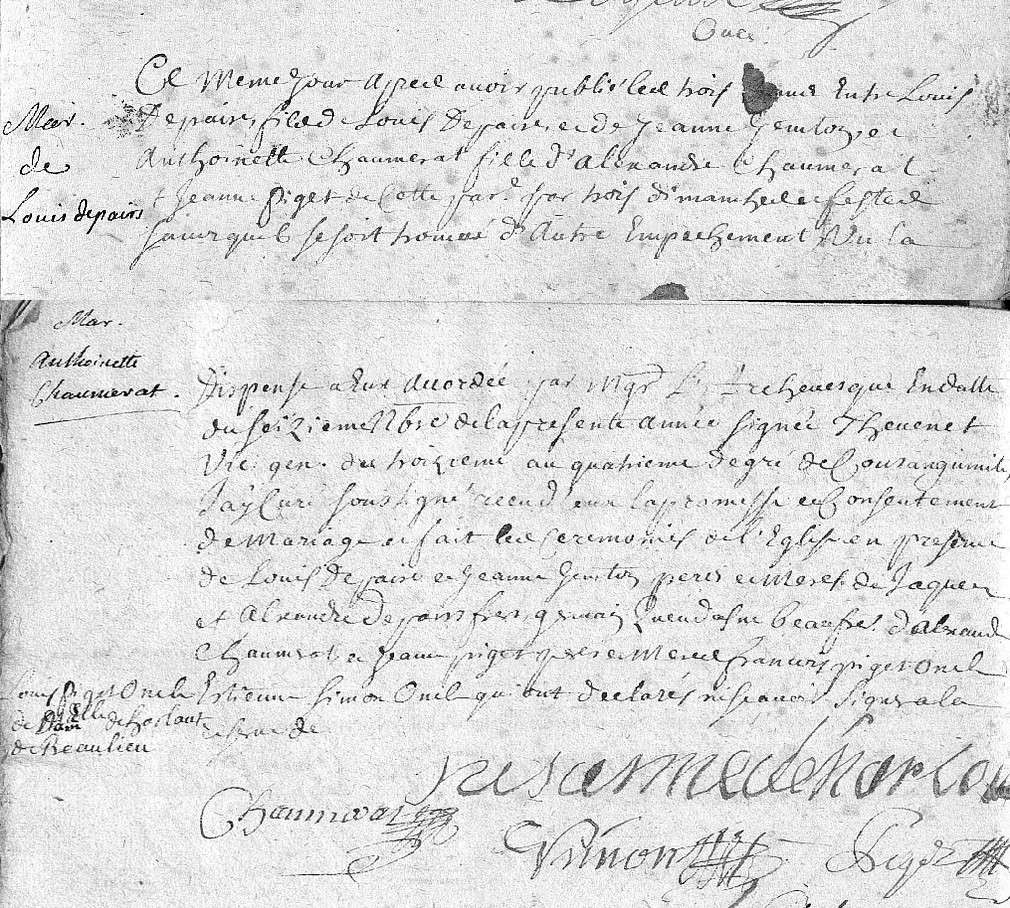 Ce meme jour apred avoir publié led trois entre Louis
Mar. Depairs, filx de Louis Depairs, et de Jeanne
de Anthoinette Chaumerat fille d'Alexandre Chaumerat
Louis depairs Jeanne piget de Cette par. par trois dimanched et fested
sansquil se soit trouvé d'Autre Empechement Vu la
Mar.
Anthoinette
Chaumerat. Dispense a Eux accordée par Mgr L'Archevesque En datte
du seizieme Nbre de la presente année signée Thevenet
Vic. gen. du troizieme au quatrieme degré de Consanguinité
Jay Curé soussigné receu d'eux la promesse et Consentement
de Mariage et fait led Ceremonies de l'Eglise en presence
de Louis Depairs et Jeanne peres et Meres de Jaques
et Alexandre Depairs freres germains beaufre. d'Alexand
Chaumerat et Jeanne piget pere et Mere francois piget Oncle
Louis piget Oncle Estienne Simon Oncle qui ont declarés ne scavoir signer a la
de de
de Beaulieu reserve de
Chaumerat
Simon Piget